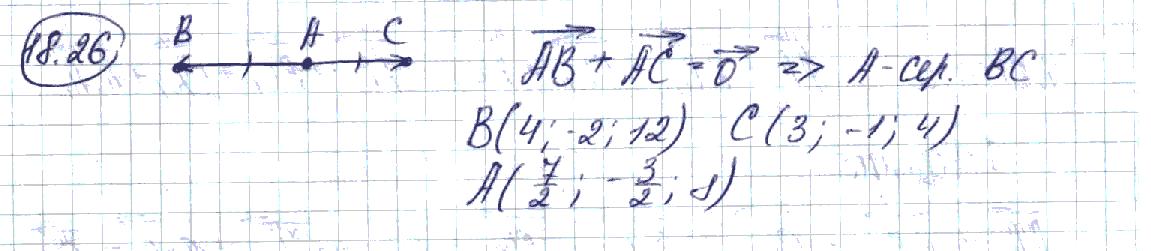 18.26 B A C
AB⃗ + AC⃗ = 0⃗ => A - сер. BC
B(4; -2; 12) C(3; -1; 4)
A(7/2; -3/2; 8)